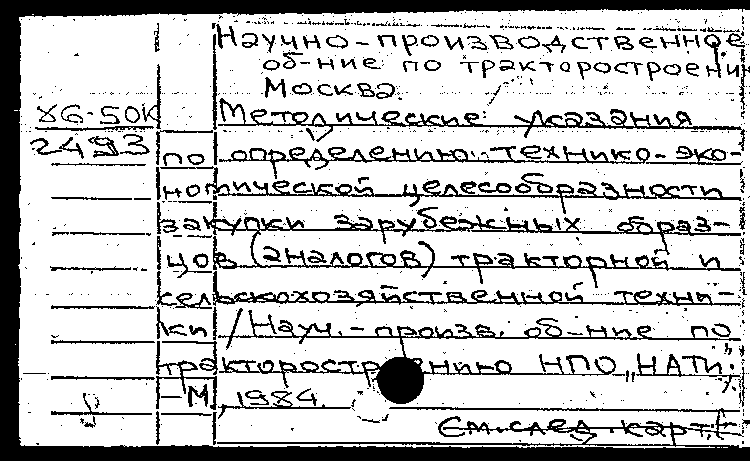 Научно-производственное
об-ние по тракторостроению
Москва.
Х6-50К Методические указания
2493 по определению технико-эко-
номической целесообразности
закупки зарубежных образ-
цов (аналогов) тракторной и
сельскохозяйственной техни-
ки / Науч.-произв. об-ние по
тракторостроению НПО „НАТИ".
-М., 1984.
См. след. карт.